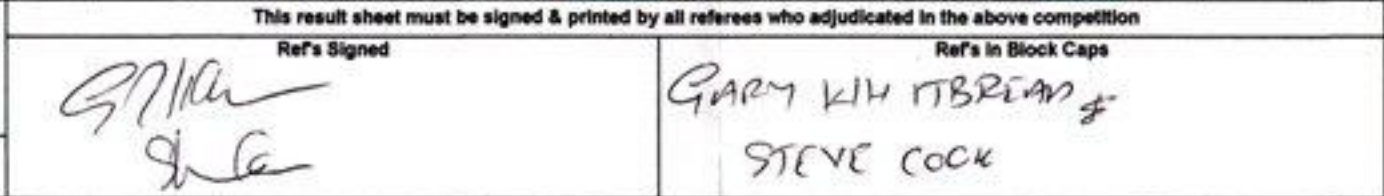 This result sheet must be signed & printed by all referees who adjudicated in the above competition
Ref's Signed
Ref's in Block Caps
GARY
STEVE COCK